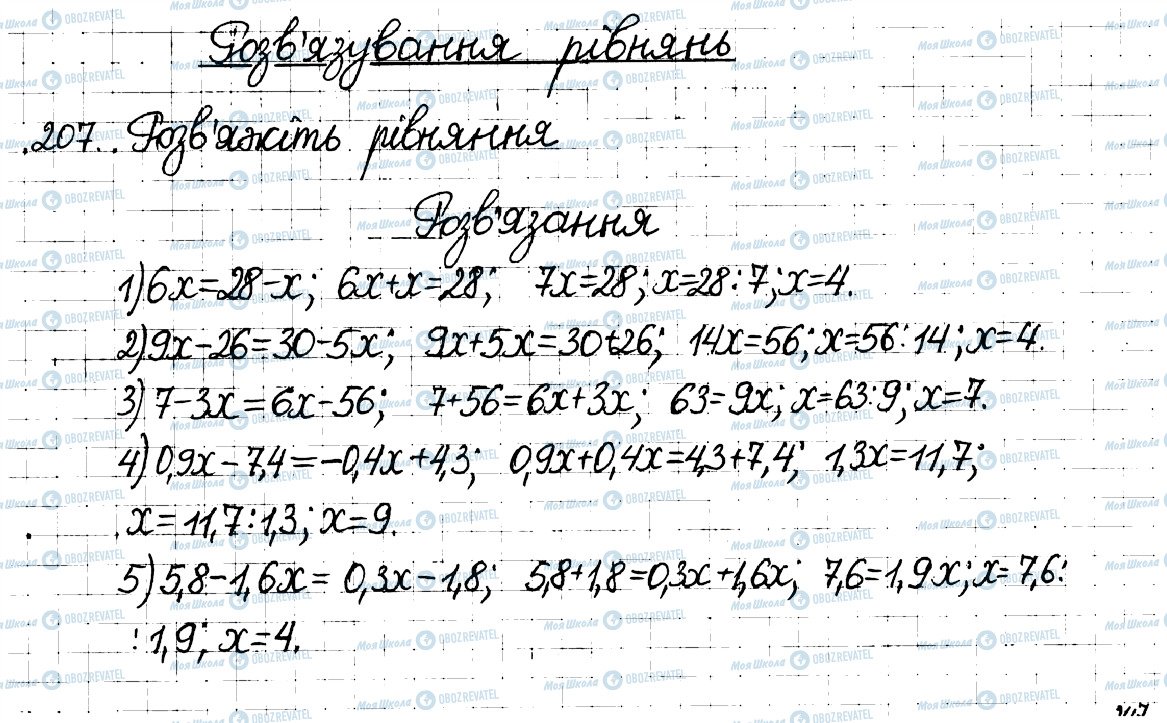 Розв'язування рівнянь
207. Розв'яжіть рівняння
Розв'язання
1) 6x=28-x; 6x+x=28; 7x=28; x=28:7; x=4.
2) 9x-26=30-5x; 9x+5x=30+26; 14x=56; x=56:14; x=4.
3) 7-3x=6x-56; 7+56=6x+3x; 63=9x; x=63:9; x=7.
4) 0,9x-7,4=-0,4x+4,3; 0,9x+0,4x=4,3+7,4; 1,3x=11,7;
x=11,7:1,3; x=9.
5) 5,8-1,6x=0,3x-1,8; 5,8+1,8=0,3x+1,6x; 7,6=1,9x; x=7,6:
:1,9; x=4.
МояШкола OBOZREVATEL